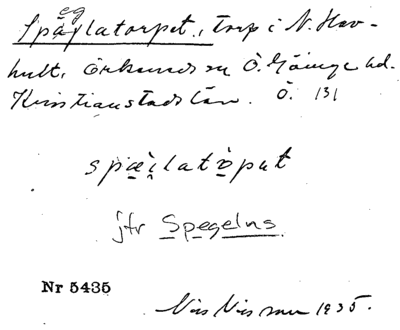 eg
Späjlatorpet, torp i N. Hav-
hult, Örkeneds sn Ö. Göinge hd.
Kristianstads län. Ö. 131
spæi̯latòput
jfr Spegelns.
Nr 5435
Nils Nilsson 1935.